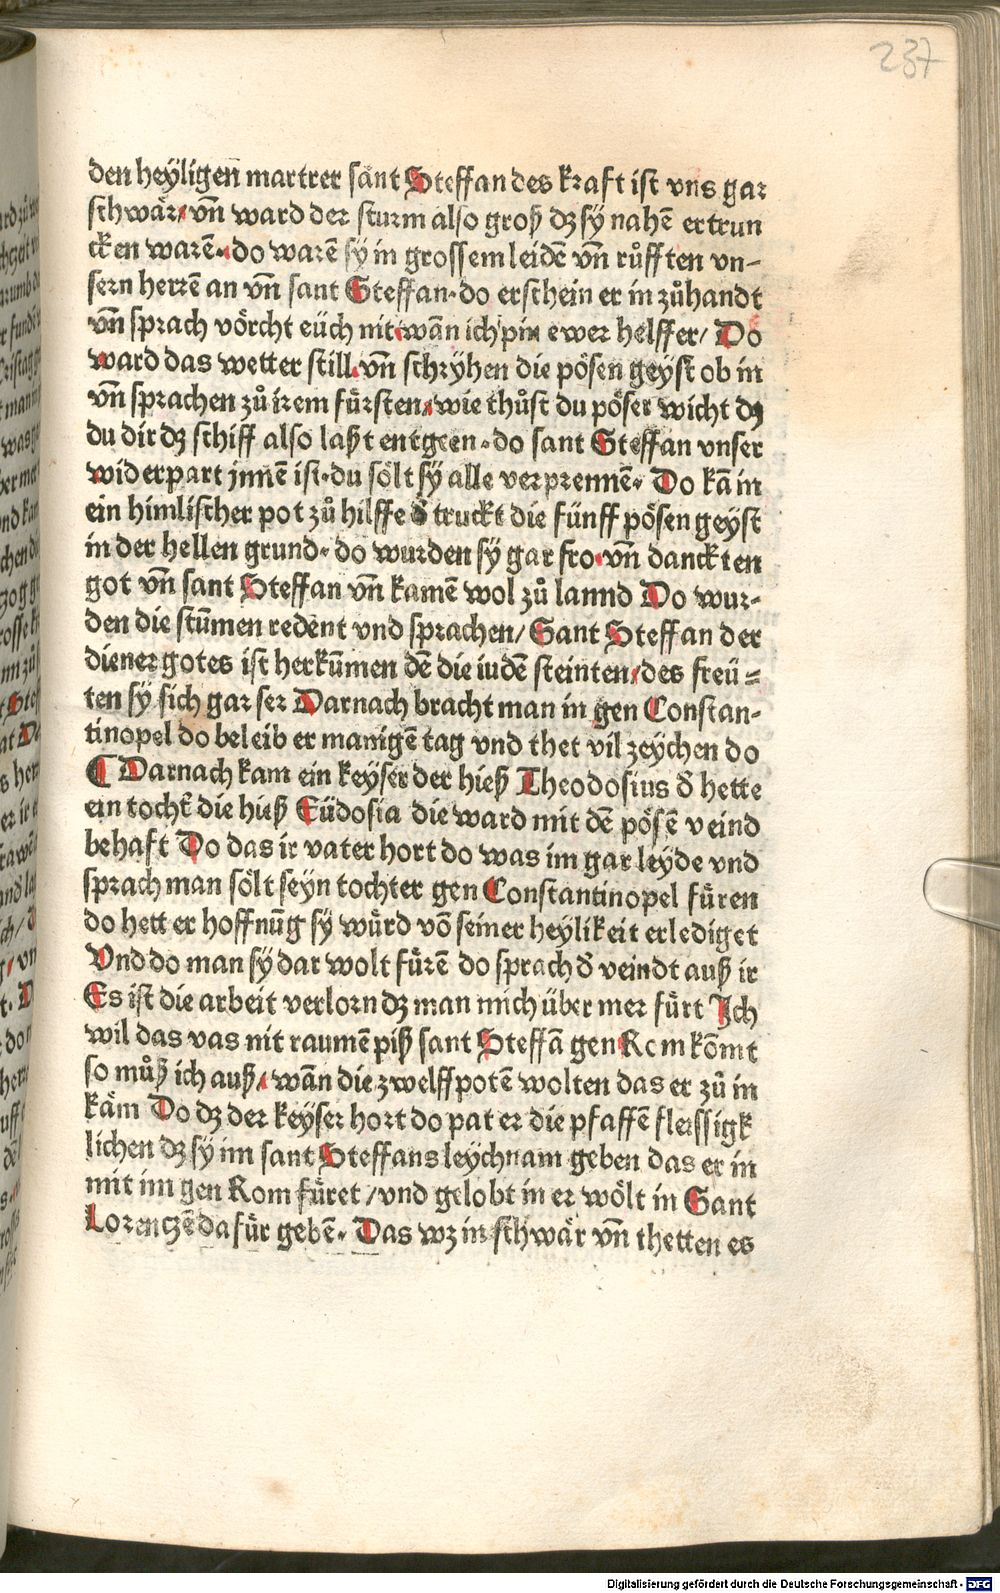 237
den heyligen̄ martrer sant Steffan des kraft ist vns gar
schwär/ vn̄ ward der sturm also groß dʒ sy nahē ertrun
cken warē. do warē sy in grossem leidē vn̄ růfften vn-
sern herrē an vn̄ sant Steffan. do erschein er in zůhandt
vn̄ sprach vörcht eüch nit. wān ich pin ewer helffer/ Do
ward das wetter still. vn̄ schryhen die pösen geyst ob in
vn̄ sprachen zů irem fürsten/ wie thůst du pöser wicht dʒ
du dir dʒ schiff also laßt entgeen. do sant Steffan vnser
widerpart jnnē ist. du sölt sy alle verprennē. Do kā in
ein himlischer pot zů hilffe đ truckt die fünff pösen geyst
in der hellen grund. do wurden sy gar fro. vn̄ danckten
got vn̄ sant Steffan vn̄ kamē wol zů lannd Do wur-
den die stūmen redent vnd sprachen/ Sant Steffan der
diener gotes ist herkūmen dē die iudē steinten/ des freü-
ten sy sich gar ser Darnach bracht man in gen Constan-
tinopel do beleib er manigē tag vnd thet vil zeychen do
¶ Darnach kam ein keyser der hieß Theodosius đ hette
ein tocht̄ die hieß Eüdosia die ward mit dē pösē veind
behaft Do das ir vater hort do was im gar leyde vnd
sprach man sölt seyn tochter gen Constantinopel füren
do hett er hoffnūg sy würd vō seiner heylikeit erlediget
Vnd do man sy dar wolt fürē do sprach đ veindt auß ir
Es ist die arbeit verlorn dʒ man mich über mer fürt Ich
wil das vas nit raumē piß sant Steffā gen Rom kōmt
so můß ich auß/ wān die zwelffpotē wolten das er zů in
käm Do dʒ der keyser hort do pat er die pfaffē fleissigk
lichen dʒ sy im sant Steffans leychnam geben das er in
mit im gen Rom füret/ vnd gelobt in er wölt in Sant
Lorentzē dafür gebē. Das wʒ in schwär vn̄ thetten es
Digitalisierung gefördert durch die Deutsche Forschungsgemeinschaft - DFG